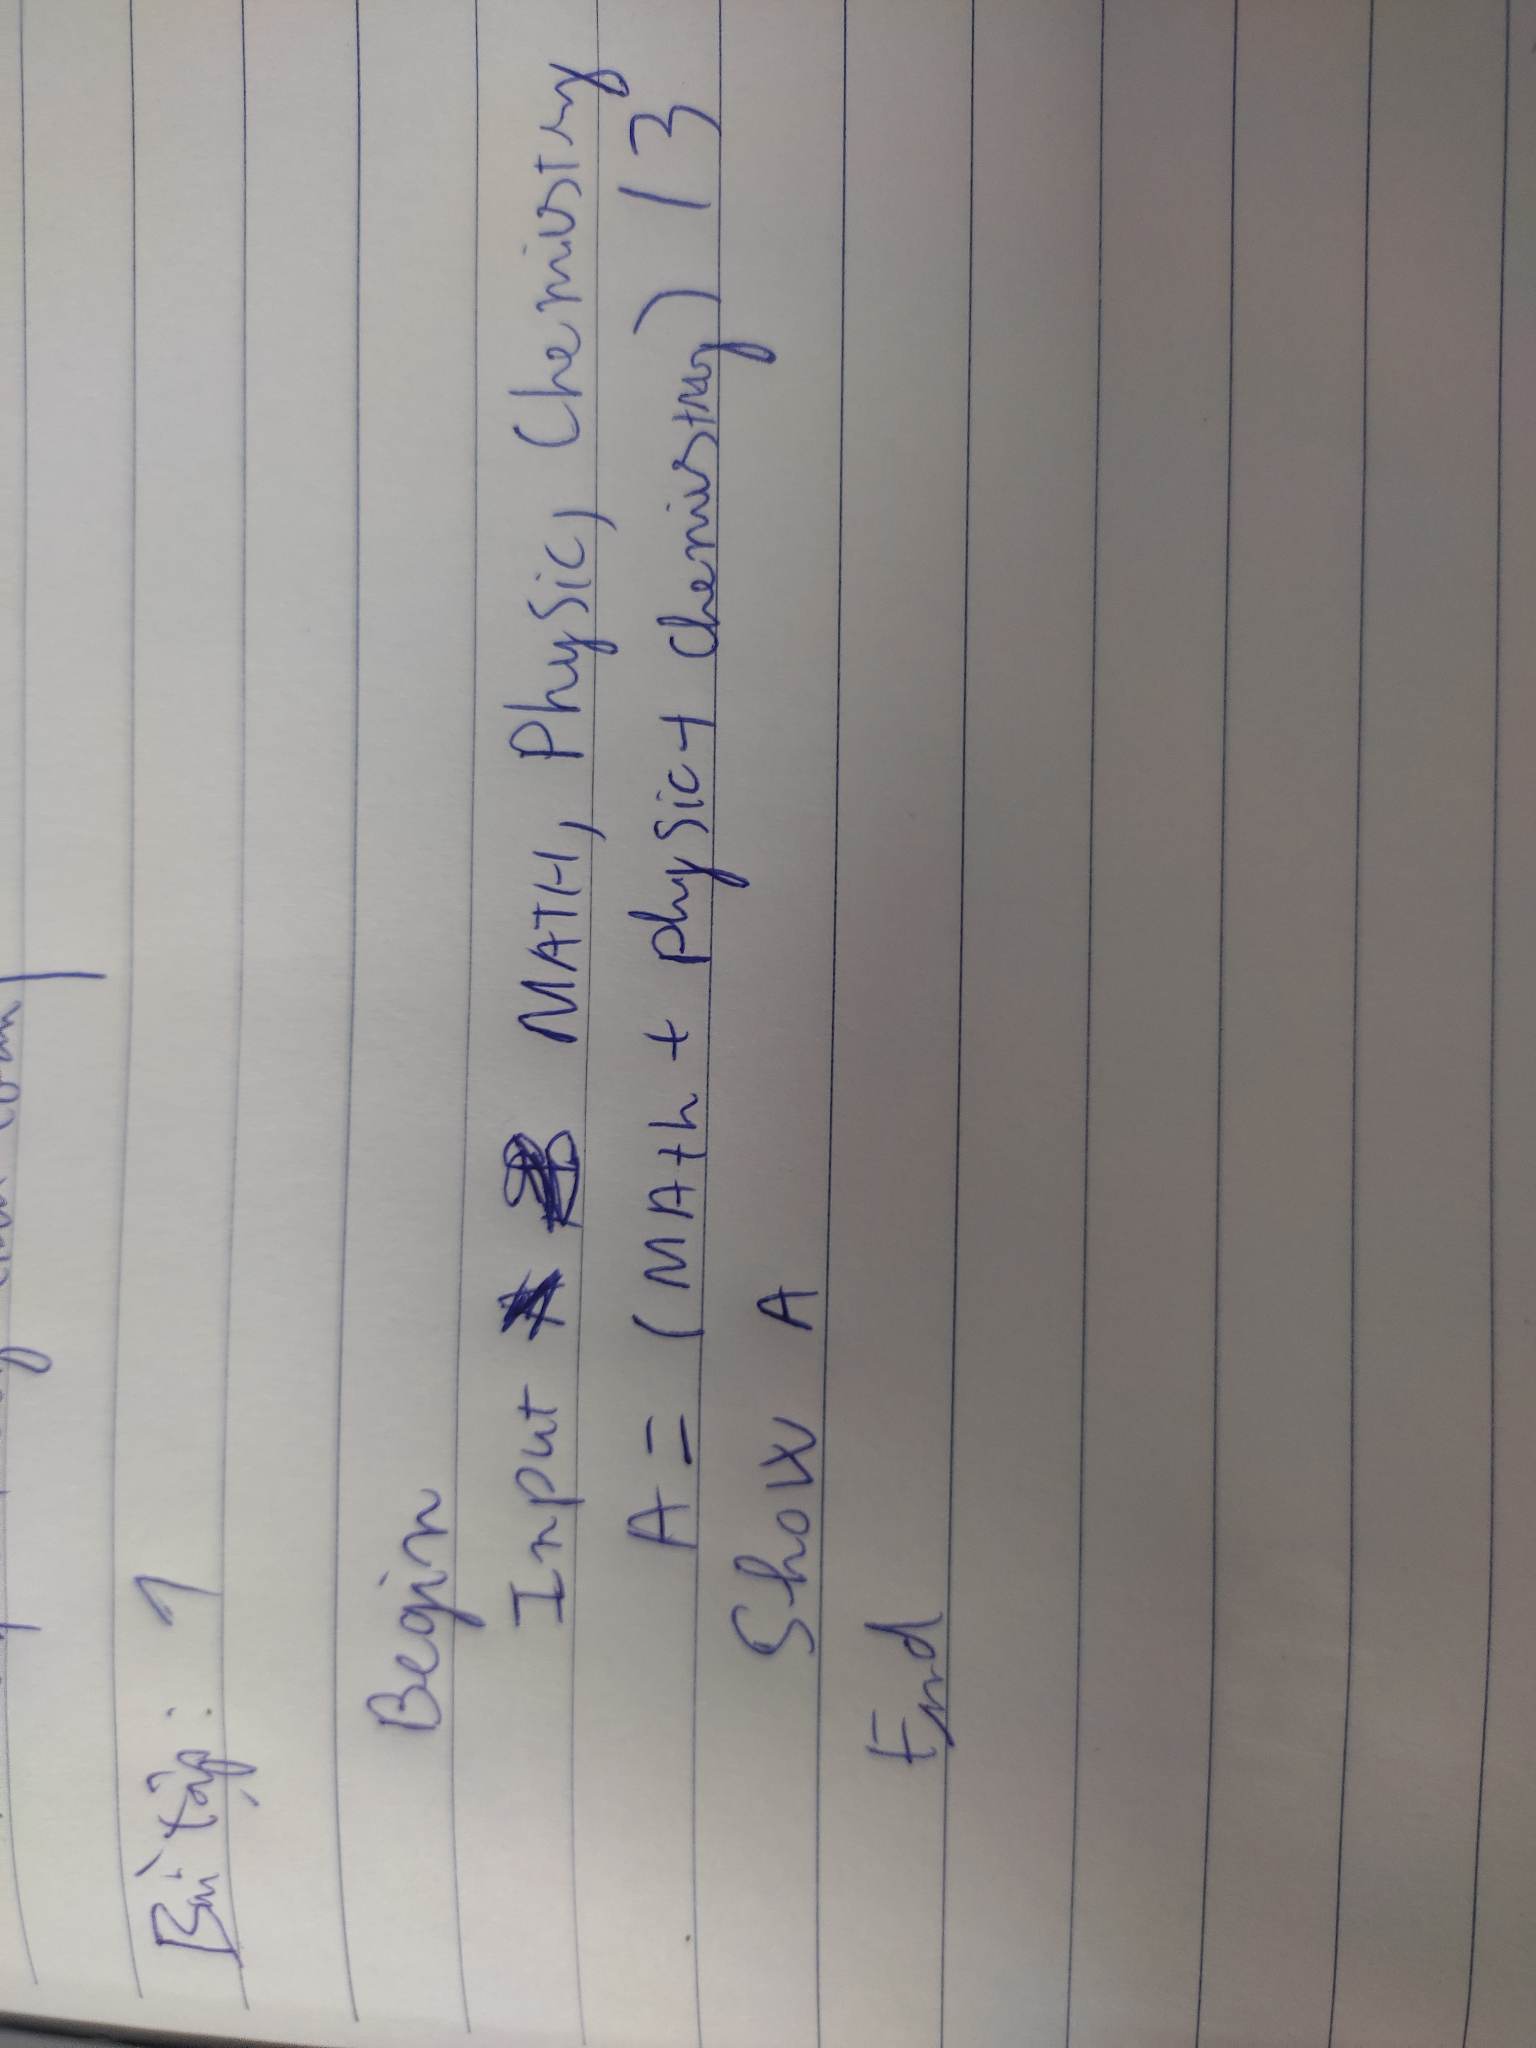 Bài tập: 1
Begin
Input MATH, Physic, Chemistry
A = (MAth + physic + chemistry) / 3
Show A
End